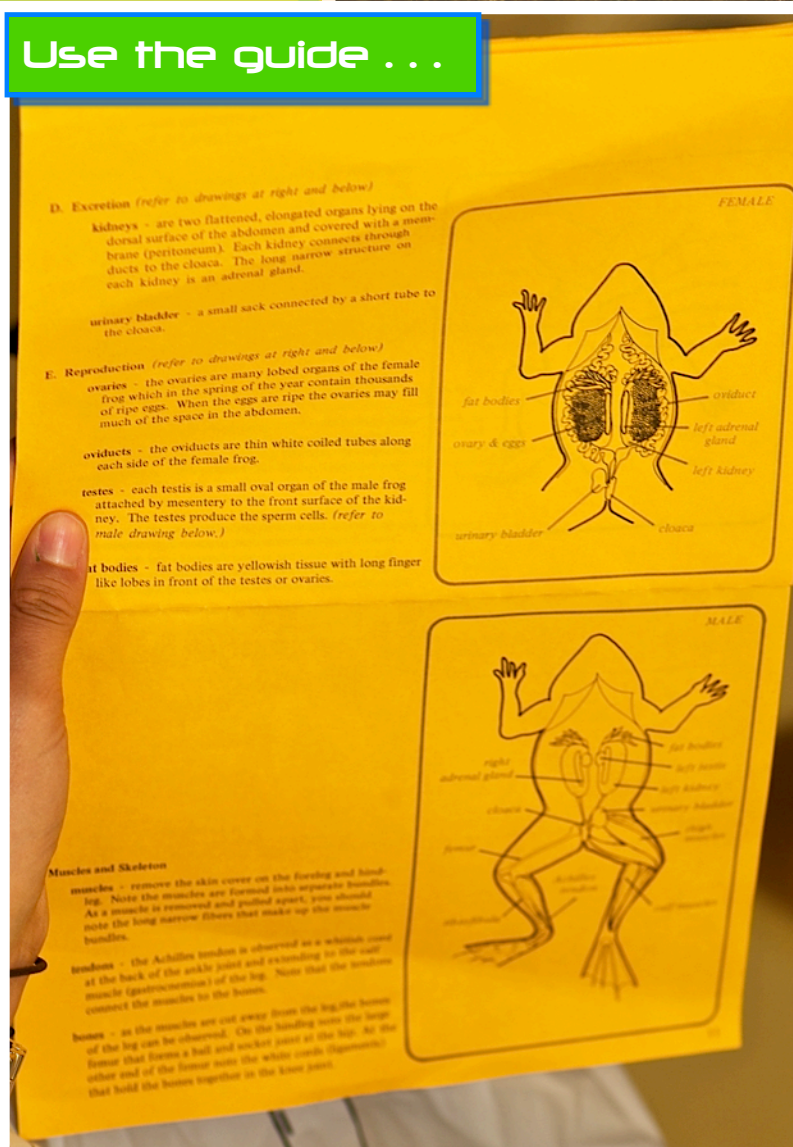 Use the guide . . .
D. Excretion (refer to drawings at right and below)
kidneys - are two flattened, elongated organs lying on the
dorsal surface of the abdomen and covered with a mem-
brane (peritoneum). Each kidney connects through
ducts to the cloaca. The long narrow structure on
each kidney is an adrenal gland.
urinary bladder - a small sack connected by a short tube to
the cloaca.
E. Reproduction (refer to drawings at right and below)
ovaries - the ovaries are many lobed organs of the female
frog which in the spring of the year contain thousands
of ripe eggs. When the eggs are ripe the ovaries may fill
much of the space in the abdomen.
oviducts - the oviducts are thin white coiled tubes along
each side of the female frog.
testes - each testis is a small oval organ of the male frog
attached by mesentery to the front surface of the kid-
ney. The testes produce the sperm cells. (refer to
male drawing below.)
at bodies - fat bodies are yellowish tissue with long finger
like lobes in front of the testes or ovaries.
Muscles and Skeleton
muscles - remove the skin cover on the foreleg and hind-
leg. Note the muscles are formed into separate bundles.
As a muscle is removed and pulled apart, you should
note the long narrow fibers that make up the muscle
bundles.
tendons - the Achilles tendon is observed as a whitish cord
at the back of the ankle joint and extending to the calf
muscle (gastrocnemius) of the leg. Note that the tendons
connect the muscles to the bones.
bones - as the muscles are cut away from the leg, the bones
of the leg can be observed. On the hindleg note the large
femur that forms a ball and socket joint at the hip. At the
other end of the femur note the white cords (ligaments)
that hold the bones together in the knee joint.
FEMALE
fat bodies
oviduct
left adrenal
gland
ovary & eggs
left kidney
urinary bladder
cloaca
MALE
fat bodies
right
adrenal gland
left testis
left kidney
cloaca
urinary bladder
muscles
femur
Achilles
tendon
calf muscle